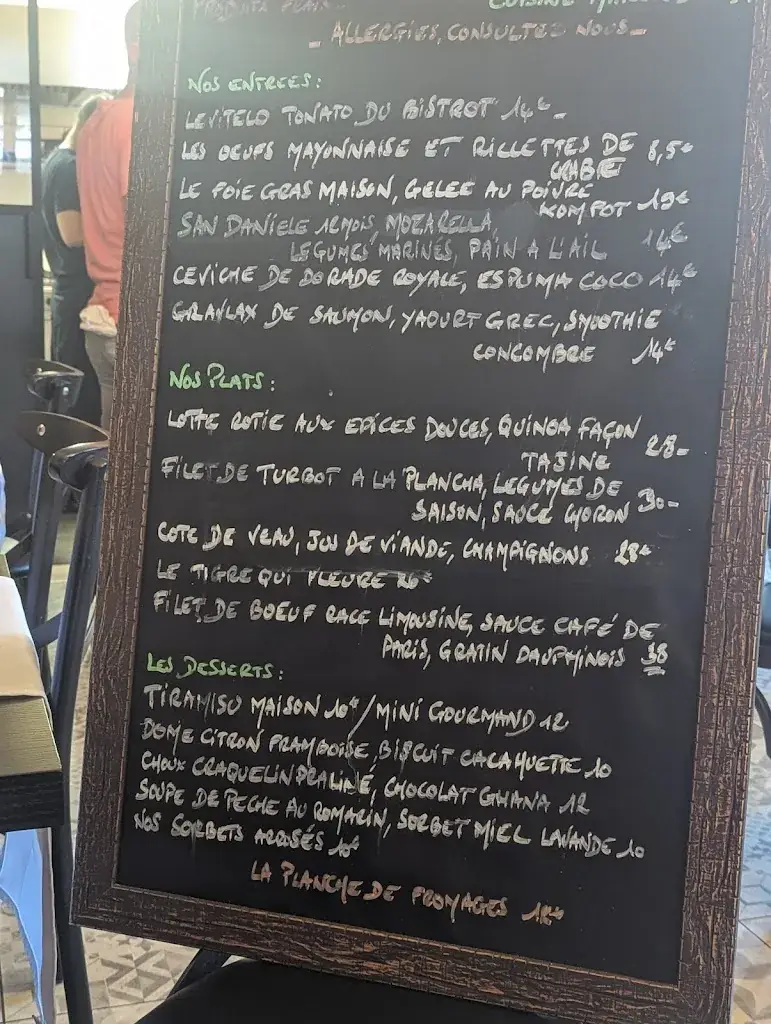 PRODUITS FRAIS...
CUISINE
_ ALLERGIES, CONSULTEZ NOUS _
NOS ENTREES :
LE VITELO TONATO DU BISTROT 14€ _
LES OEUFS MAYONNAISE ET RILLETTES DE 8,5€
CRABE
LE FOIE GRAS MAISON, GELEE AU POIVRE
KOMPOT 19€
SAN DANIELE 12 MOIS, MOZARELLA,
LEGUMES MARINÉS, PAIN A L'AIL 14€
CEVICHE DE DORADE ROYALE, ESPUMA COCO 14€
GRAVLAX DE SAUMON, YAOURT GREC, SMOOTHIE
CONCOMBRE 14€
NOS PLATS :
LOTTE ROTIE AUX EPICES DOUCES, QUINOA FAÇON 28-
TAJINE
FILET DE TURBOT A LA PLANCHA, LEGUMES DE
SAISON, SAUCE CHORON 30-
COTE DE VEAU, JUS DE VIANDE, CHAMPIGNONS 28€
LE TIGRE QUI PLEURE 26€
FILET DE BOEUF RACE LIMOUSINE, SAUCE CAFÉ DE
PARIS, GRATIN DAUPHINOIS 38
LES DESSERTS :
TIRAMISU MAISON 10€ / MINI GOURMAND 12
DOME CITRON FRAMBOISE, BISCUIT CACAHUETTE 10
CHOUX CRAQUELIN PRALINÉ, CHOCOLAT GHANA 12
SOUPE DE PECHE AU ROMARIN, SORBET MIEL LAVANDE 10
NOS SORBETS AROSÉS 10€
LA PLANCHE DE FROMAGES 12€